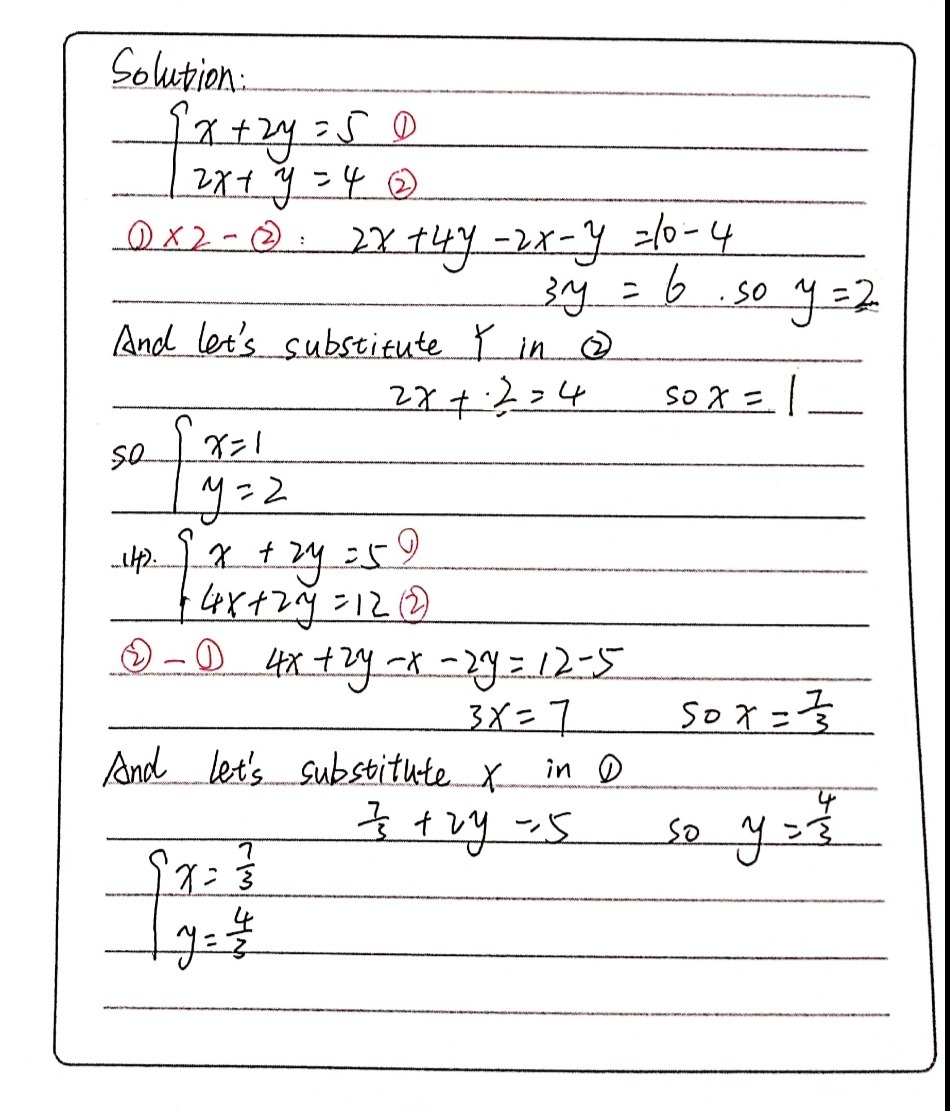 Solution:
{ x + 2y = 5 ①
2x + y = 4 ②
① × 2 - ② : 2x + 4y - 2x - y = 10 - 4
3y = 6 . so y = 2
And let's substitute Y in ②
2x + 2 = 4 so x = 1
so { x = 1
y = 2
(4). { x + 2y = 5 ①
4x + 2y = 12 ②
② - ① 4x + 2y - x - 2y = 12 - 5
3x = 7 so x = 7/3
And let's substitute x in ①
7/3 + 2y = 5 so y = 4/3
{ x = 7/3
y = 4/3